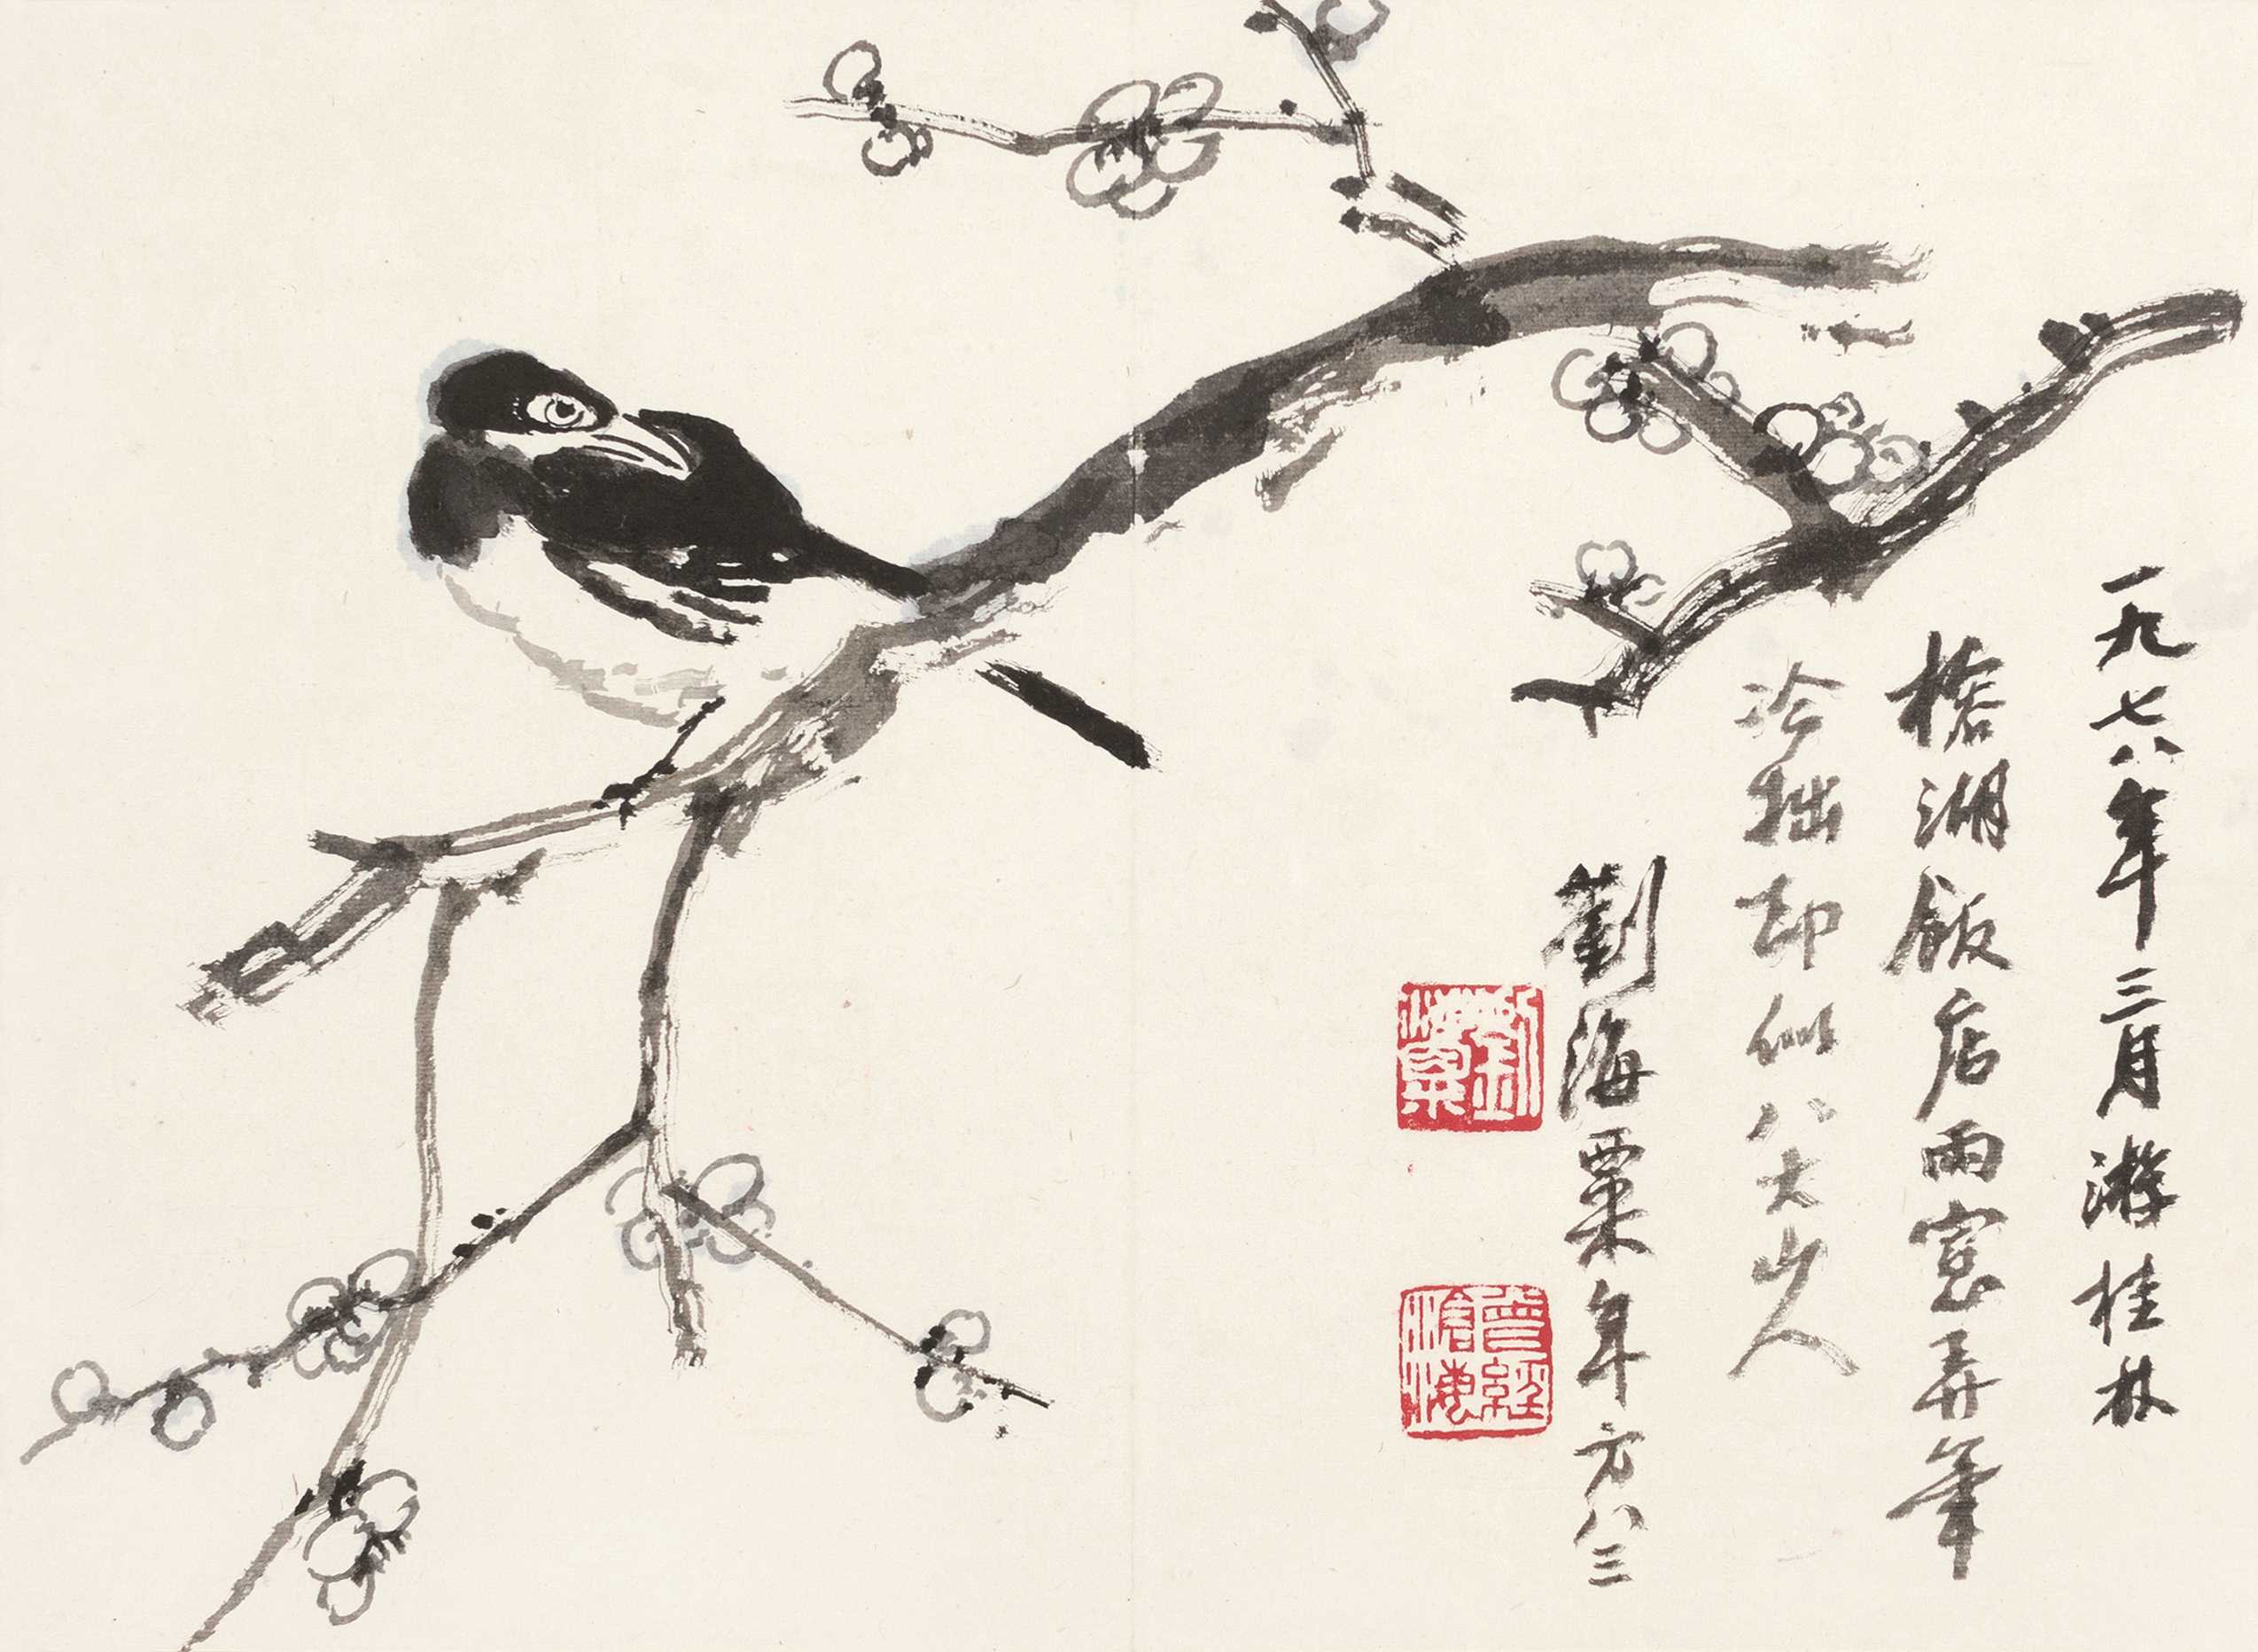 一九七八年三月游桂林
榕湖飯店雨窓弄筆
冷拙却似八大山人
劉海粟年方八三
劉海粟
曾經滄海